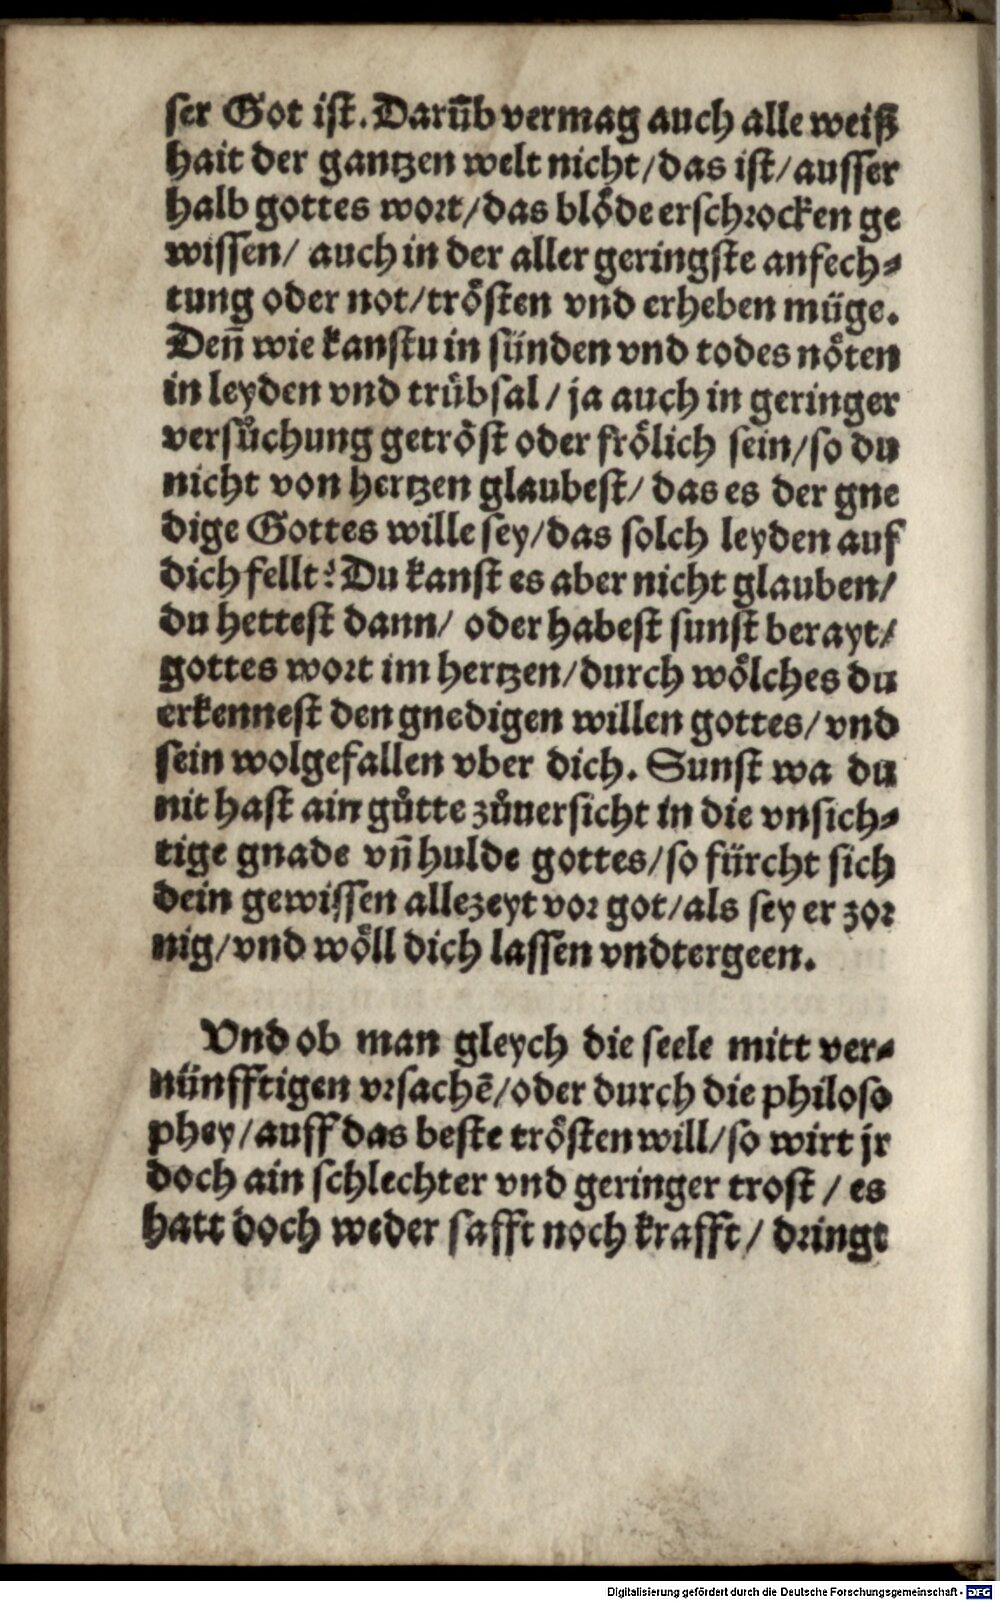 ser Got ist. Darum̄b vermag auch alle weiß
hait der gantzen welt nicht/das ist/ausser
halb gottes wort/das bloͤde erschrocken ge
wissen/ auch in der aller geringste anfech⸗
tung oder not/troͤsten vnd erheben müge.
Deñ wie kanstu in sünden vnd todes noͤten
in leyden vnd truͤbsal/ ja auch in geringer
versůchung getroͤst oder froͤlich sein/so du
nicht von hertzen glaubest/ das es der gne
dige Gottes wille sey/das solch leyden auf
dich fellt? Du kanst es aber nicht glauben/
du hettest dann/ oder habest sunst berayt/
gottes wort im hertzen/durch woͤlches du
erkennest den gnedigen willen gottes/ vnd
sein wolgefallen vber dich. Sunst wa du
nit hast ain gůtte zůuersicht in die vnsich⸗
tige gnade vñ hulde gottes/so fürcht sich
dein gewissen allezeyt vor got/als sey er zor
nig/vnd woͤll dich lassen vndtergeen.
Vnd ob man gleych die seele mitt ver⸗
nünfftigen vrsachē/oder durch die philoso
phey/auff das beste troͤsten will/so wirt jr
doch ain schlechter vnd geringer trost/ es
hatt doch weder safft noch krafft/ dringt
Digitalisierung gefördert durch die Deutsche Forschungsgemeinschaft - DFG